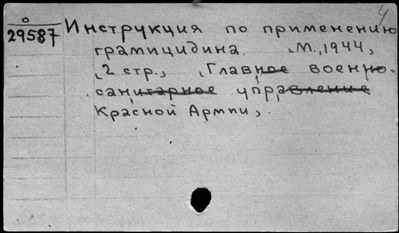 4
О
29587 Инструкция по применению
грамицидина. М., 1944,
2 стр., Главное военно-
санитарное управление
Красной Армии,.